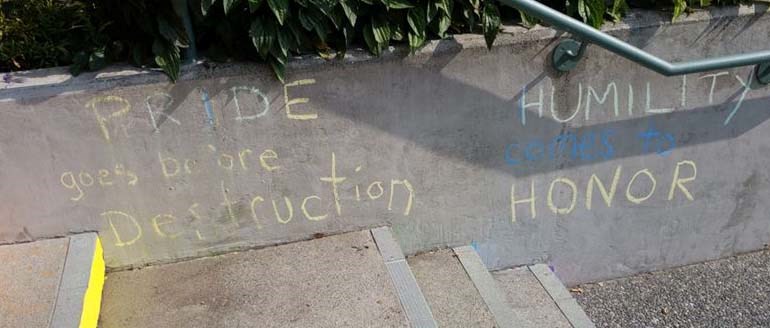 PRIDE
goes before
Destruction
HUMILITY
comes to
HONOR